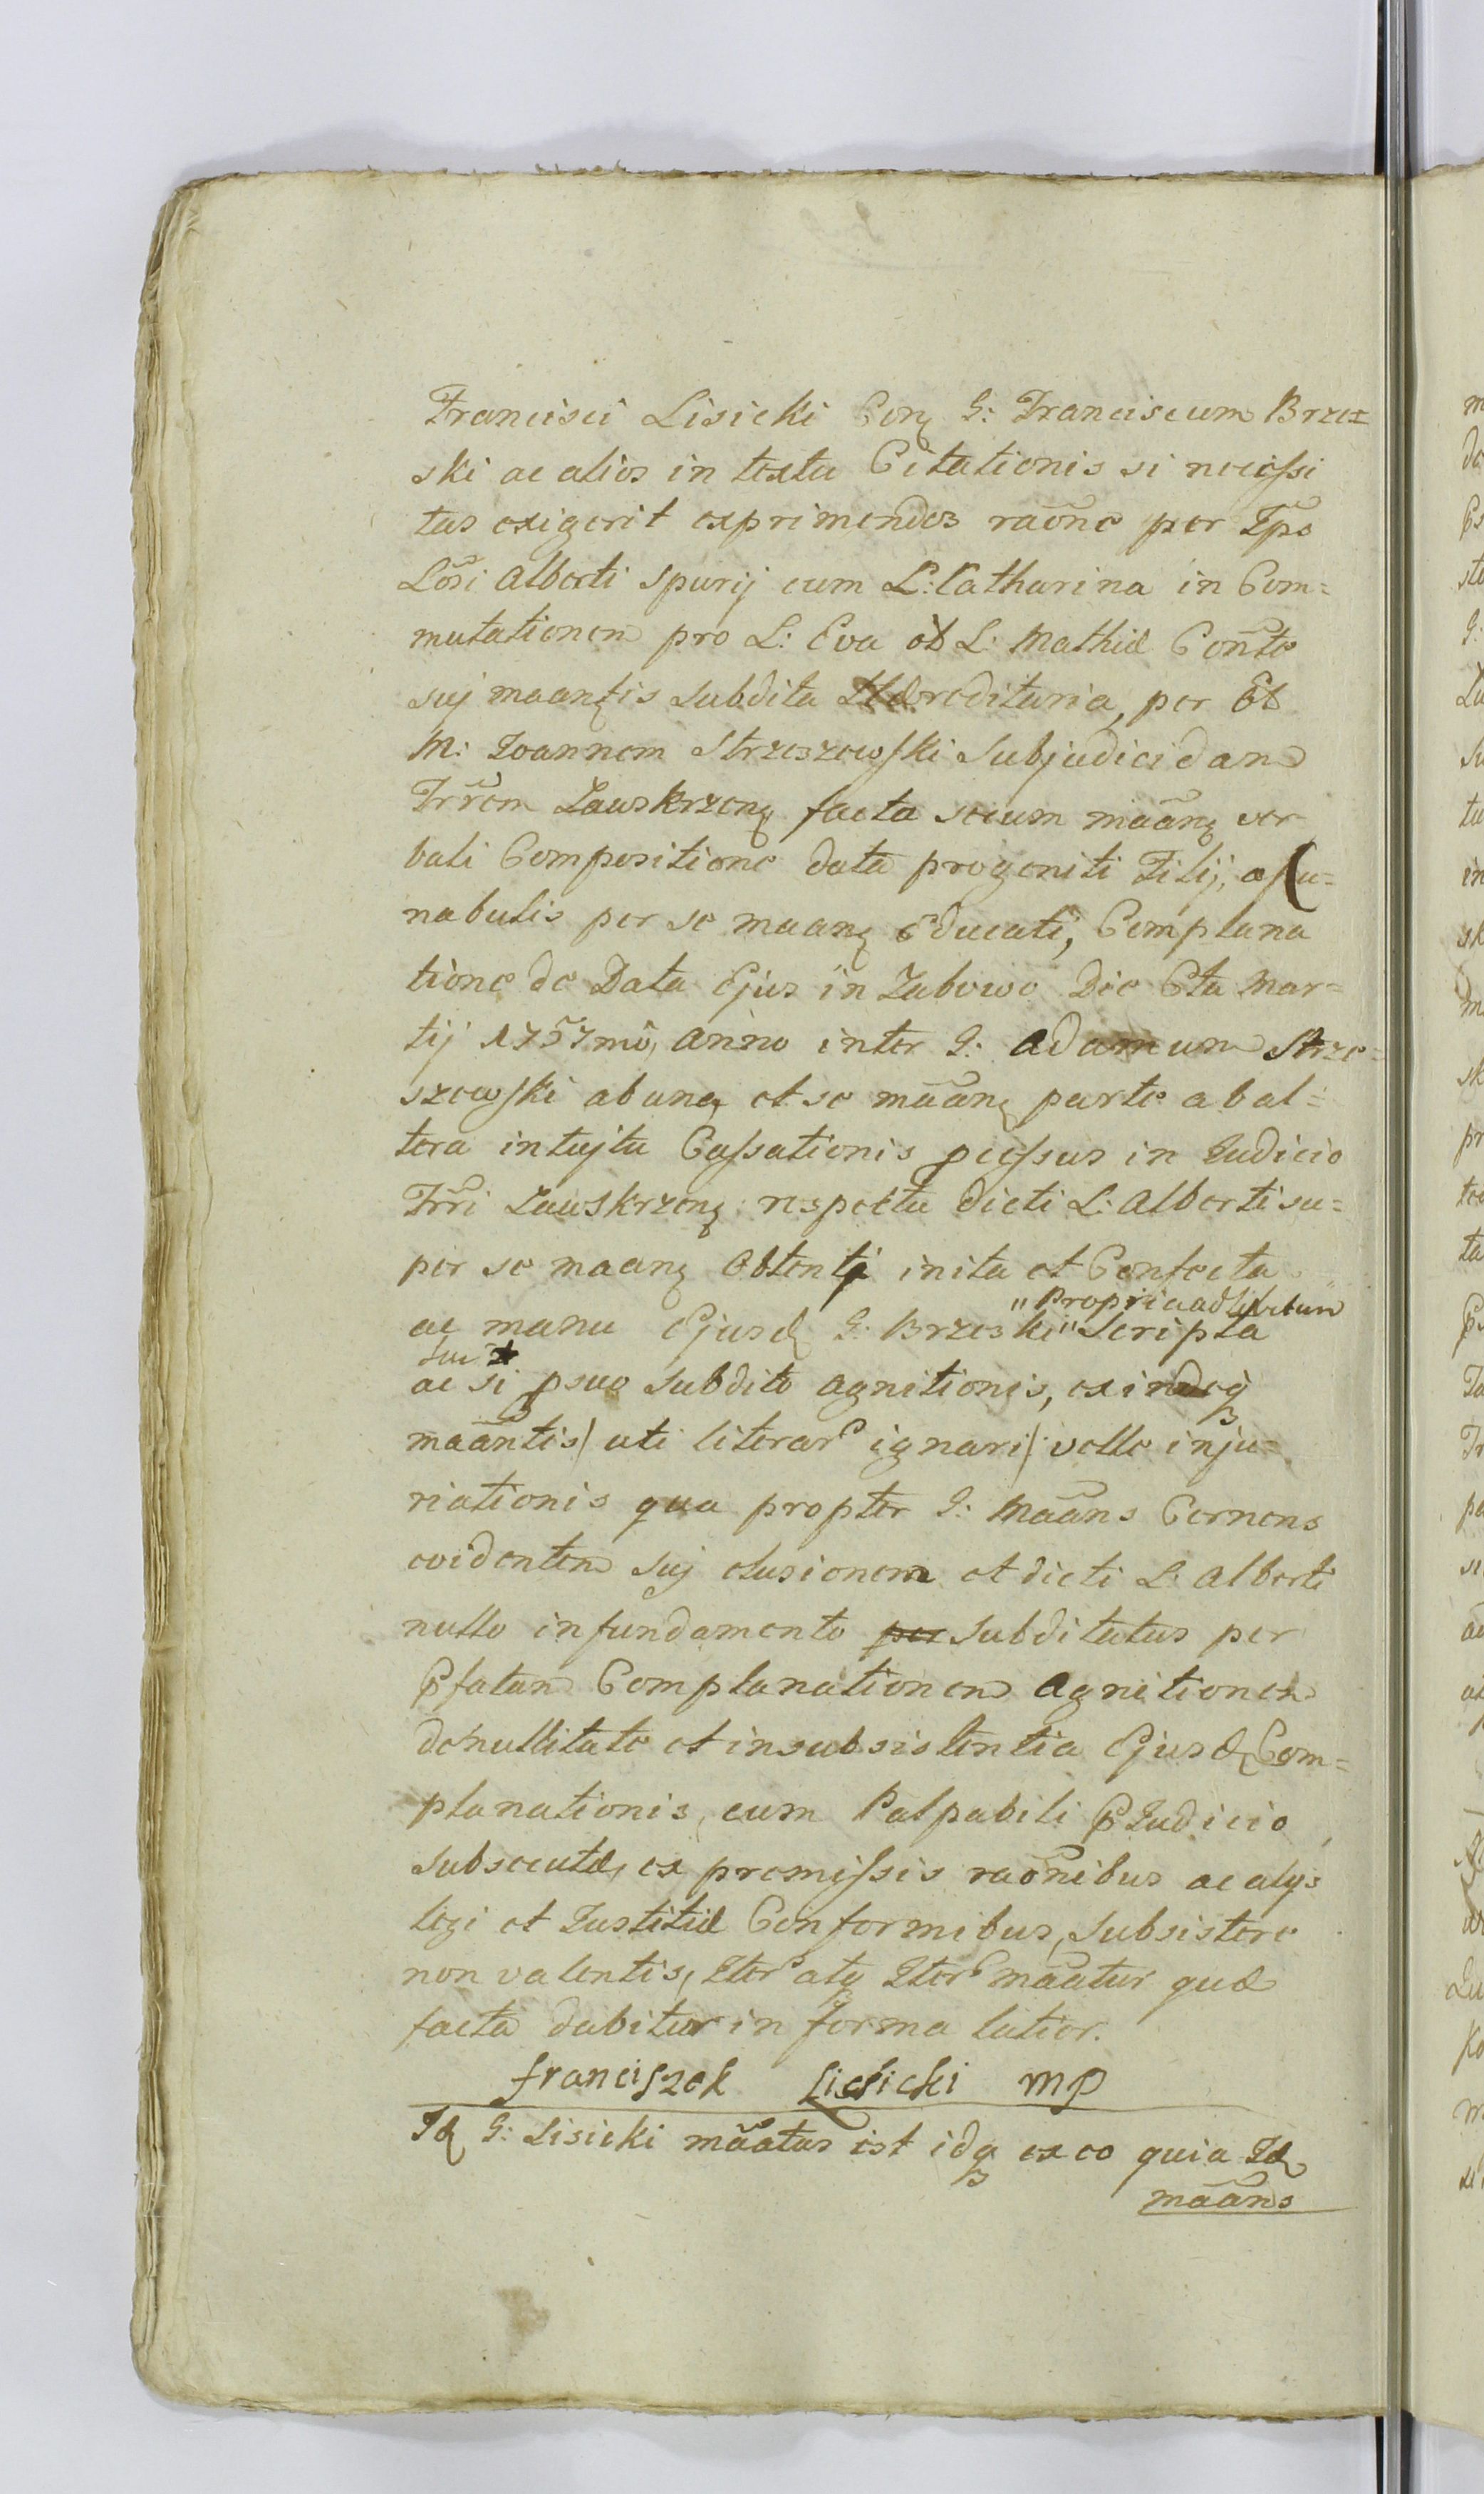 Francisci Lisicki Conɋ G: Franciscum Brzez
ski ac alios in textu Citationis si necessi
tas exigerit exprimendos raõne per Ipõ
Lõsi Alberti spurij cum L: Catharina in Com=
mutationem pro L: Eva ob L: Mathiæ Coñte
suj maanɋis Subdita Hæreditaria, per
M: Joannem Strzeszewski Subjudicidam
Trr̃em Zauskrzenɋ facta secum mããnɋ ver
bali Compositione data progeniti Filij, a cu=
nabulis per se maanɋ Educati, Complana
tione de Data Ejus in Zabowo Die 6ta Mar=
tij 1757mô, Anno inter G: Adamum Strze=
szewski ab una, et se mããnɋ parte ab al=
tera intujtu Cassationis pcessus in Judicio
Trr̃i Zauskrzenɋ respectu dicti L: Alberti su=
per se maanɋ Obtentj inita et Confecta
ac manu Ejusdɋ G: Brzeski "Propria ad libitum" Scripta
ac si psuo Subdito agnitionis, exindeqɜ
mããntis/ uti literarᵉ ignari/: velle inju=
riationis qua propter G: Mããns Cernens
evidentem suj elusionem et dicti L: Alberti
nullo in fundamento ~~per~~ Subditatus per
Pfatam Complanationem Agnitionem
de nullitate et insubsistentia Ejusdɋ Com=
planationis, cum Palpabili PJudicio
subsecutæ, ex premissis raõnibus ac alijs
legi et Justitiæ Conformibus, Subsistere
non valentis, Iterᵉ atqɜ Iterᵉ mããtur quæ
facta dabitur in forma latior.
franciszek Lisicki mp
Idɋ G: Lisicki mããtus est idqɜ ex eo quia Idɋ
mããns